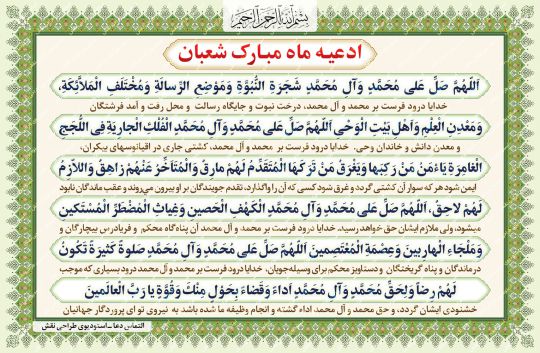 بسم الله الرحمن الرحیم
ادعیه ماه مبارک شعبان
اَللّهُمَّ صَلِّ عَلى مُحَمَّدٍ وَآلِ مُحَمَّدٍ شَجَرَةِ النُّبُوَّةِ وَمَوْضِعِ الرِّسالَةِ وَمُخْتَلَفِ الْمَلآئِكَةِ،
خدایا درود فرست بر محمد و آل محمد، درخت نبوت و جایگاه رسالت و محل رفت و آمد فرشتگان
وَمَعْدِنِ الْعِلْمِ وَاَهْلِ بَيْتِ الْوَحْىِ اَللّهُمَّ صَلِّ عَلى مُحَمَّدٍ وَآلِ مُحَمَّدٍ الْفُلْكِ الْجارِيَةِ فِى اللُّجَجِ
و معدن دانش و خاندان وحی. خدایا درود فرست بر محمد و آل محمد، کشتی جاری در اقیانوسهای بیکران،
الْغامِرَةِ يَاْمَنُ مَنْ رَكِبَها وَيَغْرَقُ مَنْ تَرَكَهَا الْمُتَقَدِّمُ لَهُمْ مارِقٌ وَالْمُتَاَخِّرُ عَنْهُمْ زاهِقٌ وَاللاّزِمُ
ایمن شود هر که سوار آن کشتی گردد و غرق شود کسی که آن را واگذارد، تقدم جویندگان بر او بیرون می‌روند و عقب ماندگان نابود
لَهُمْ لاحِقٌ، اَللّهُمَّ صَلِّ عَلى مُحَمَّدٍ وَآلِ مُحَمَّدٍ الْكَهْفِ الْحَصينِ وَغِياثِ الْمُضْطَرِّ الْمُسْتَكينِ
میشود، ولی ملازم ایشان حق خواهد رسید. خدایا درود فرست بر محمد و آل محمد آن پناه‌گاه محکم و فریادرس بیچارگان و
وَمَلْجَاءِ الْهارِبينَ وَعِصْمَةِ الْمُعْتَصِمينَ اَللّهُمَّ صَلِّ عَلى مُحَمَّدٍ وَآلِ مُحَمَّدٍ صَلوةً كَثيرَةً تَكُونُ
درماندگان و پناه گریختگان و دستاویز محکم برای وسیله‌جویان، خدایا درود فرست بر محمد و آل محمد درود بسیاری که موجب
لَهُمْ رِضاً وَلِحَقِّ مُحَمَّدٍ وَآلِ مُحَمَّدٍ اَداءً وَقَضاءً بِحَوْلٍ مِنْكَ وَقُوَّةٍ يا رَبَّ الْعالَمينَ
خشنودی ایشان گردد، و حق محمد و آل محمد اداء گشته و انجام وظیفه ما شده باشد به نیروی تو ای پروردگار جهانیان
التماس دعا ــ استودیوی طراحی نقش